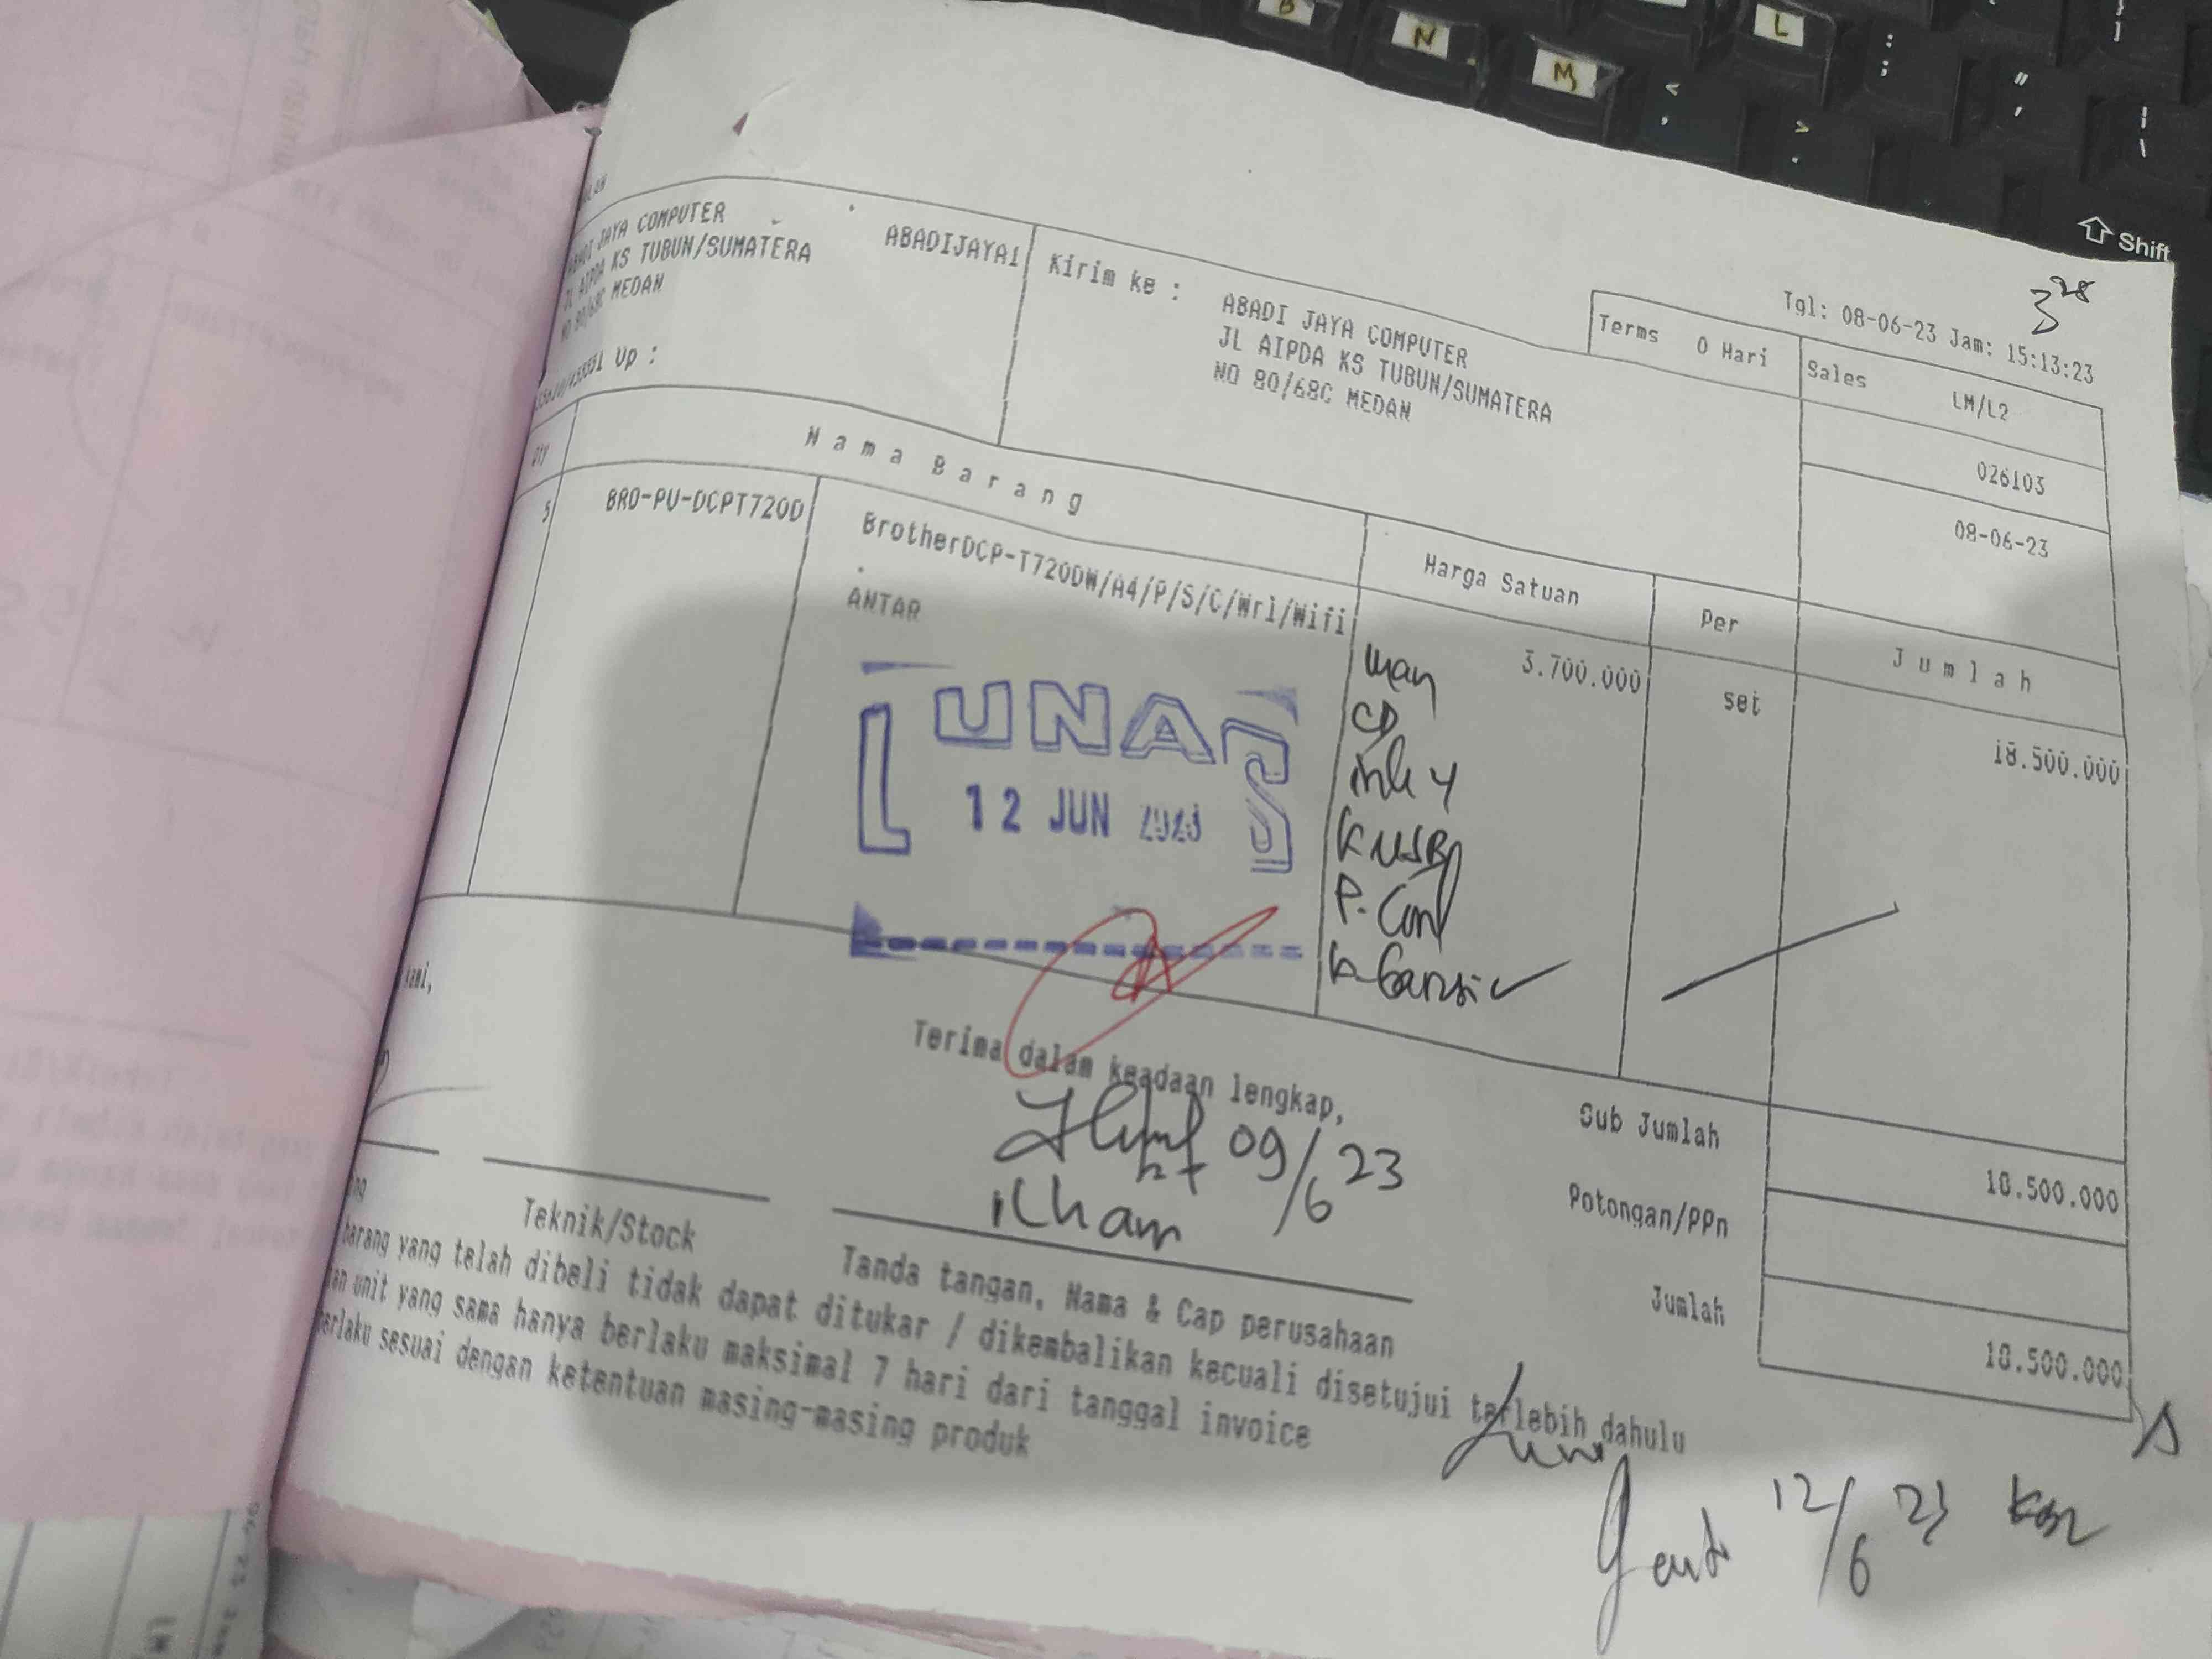 Tgl: 08-06-23 Jam: 15:13:23
JAYA COMPUTER ABADIJAYA1
JL AIPDA KS TUBUN/SUMATERA
NO 80/68C MEDAN
Up :
Kirim ke : ABADI JAYA COMPUTER
JL AIPDA KS TUBUN/SUMATERA
NO 80/68C MEDAN
Terms 0 Hari
Sales LM/L2
026103
08-06-23
Qty Nama Barang Harga Satuan Per Jumlah
5 BRO-PU-DCPT720D BrotherDCP-T720DW/A4/P/S/C/Wrl/Wifi 3.700.000 set 18.500.000
ANTAR
LUNAS
12 JUN 2023
man
CD
ink 4
K USB
P. Conf
k-Garansi
kami,
Terima dalam keadaan lengkap,
09/6 23
ilham
Teknik/Stock
Tanda tangan, Nama & Cap perusahaan
Sub Jumlah 18.500.000
Potongan/PPn
Jumlah 18.500.000
barang yang telah dibeli tidak dapat ditukar / dikembalikan kecuali disetujui terlebih dahulu
unit yang sama hanya berlaku maksimal 7 hari dari tanggal invoice
berlaku sesuai dengan ketentuan masing-masing produk
12/6 23
B
N
M
L
Shift